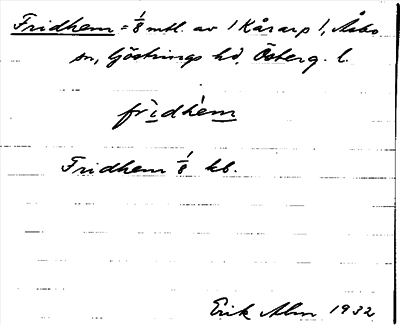 Fridhem = 1/8 mtl. av 1 Kårarp 1, Åsbo
sn, Göstrings hd, Österg. l.
frìdhèm
Fridhem 1/8 kb.
Erik Alm 1932